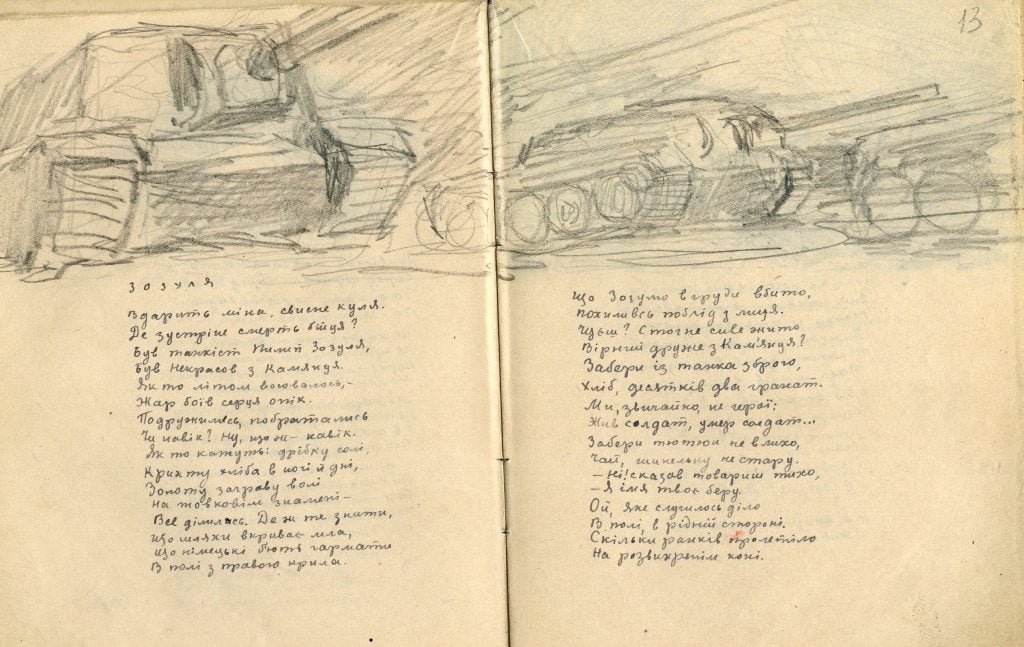 13
Зозуля
Вдарить міна, свисне куля.
Де зустріне смерть бійця?
Був танкіст Пилип Зозуля,
Був Некрасов з Кам'янця.
Як то літом воювалось, –
Жар боїв серця опік.
Подружились, побратались
Чи навік? Ну, що ж – навік.
Як то кажуть: дрібку солі,
Крихту хліба в ночі й дні,
Золоту заграву волі
На шовковім знамені –
Все ділилась. Де ж те знати,
Що шляхи вкриває мла,
Що німецькі б'ють гармати
В полі з правого крила.
Що Зозулю в груди вбито,
Похиливсь поблід з лиця.
Чуєш? Стогне сиве жито
Вірний друже з Кам'янця?
Забери із танка зброю,
Хліб, десятків два гранат.
Ми, звичайно, не герої:
Жив солдат, умер солдат...
Забери тютюн не влихо,
Чай, шинельку не стару.
– Ні! сказав товариш тихо,
– Я імя твоє беру.
Ой, яке случилось діло
В полі, в рідній стороні.
Скільки ранків пролетіло
На розвихренім коні.